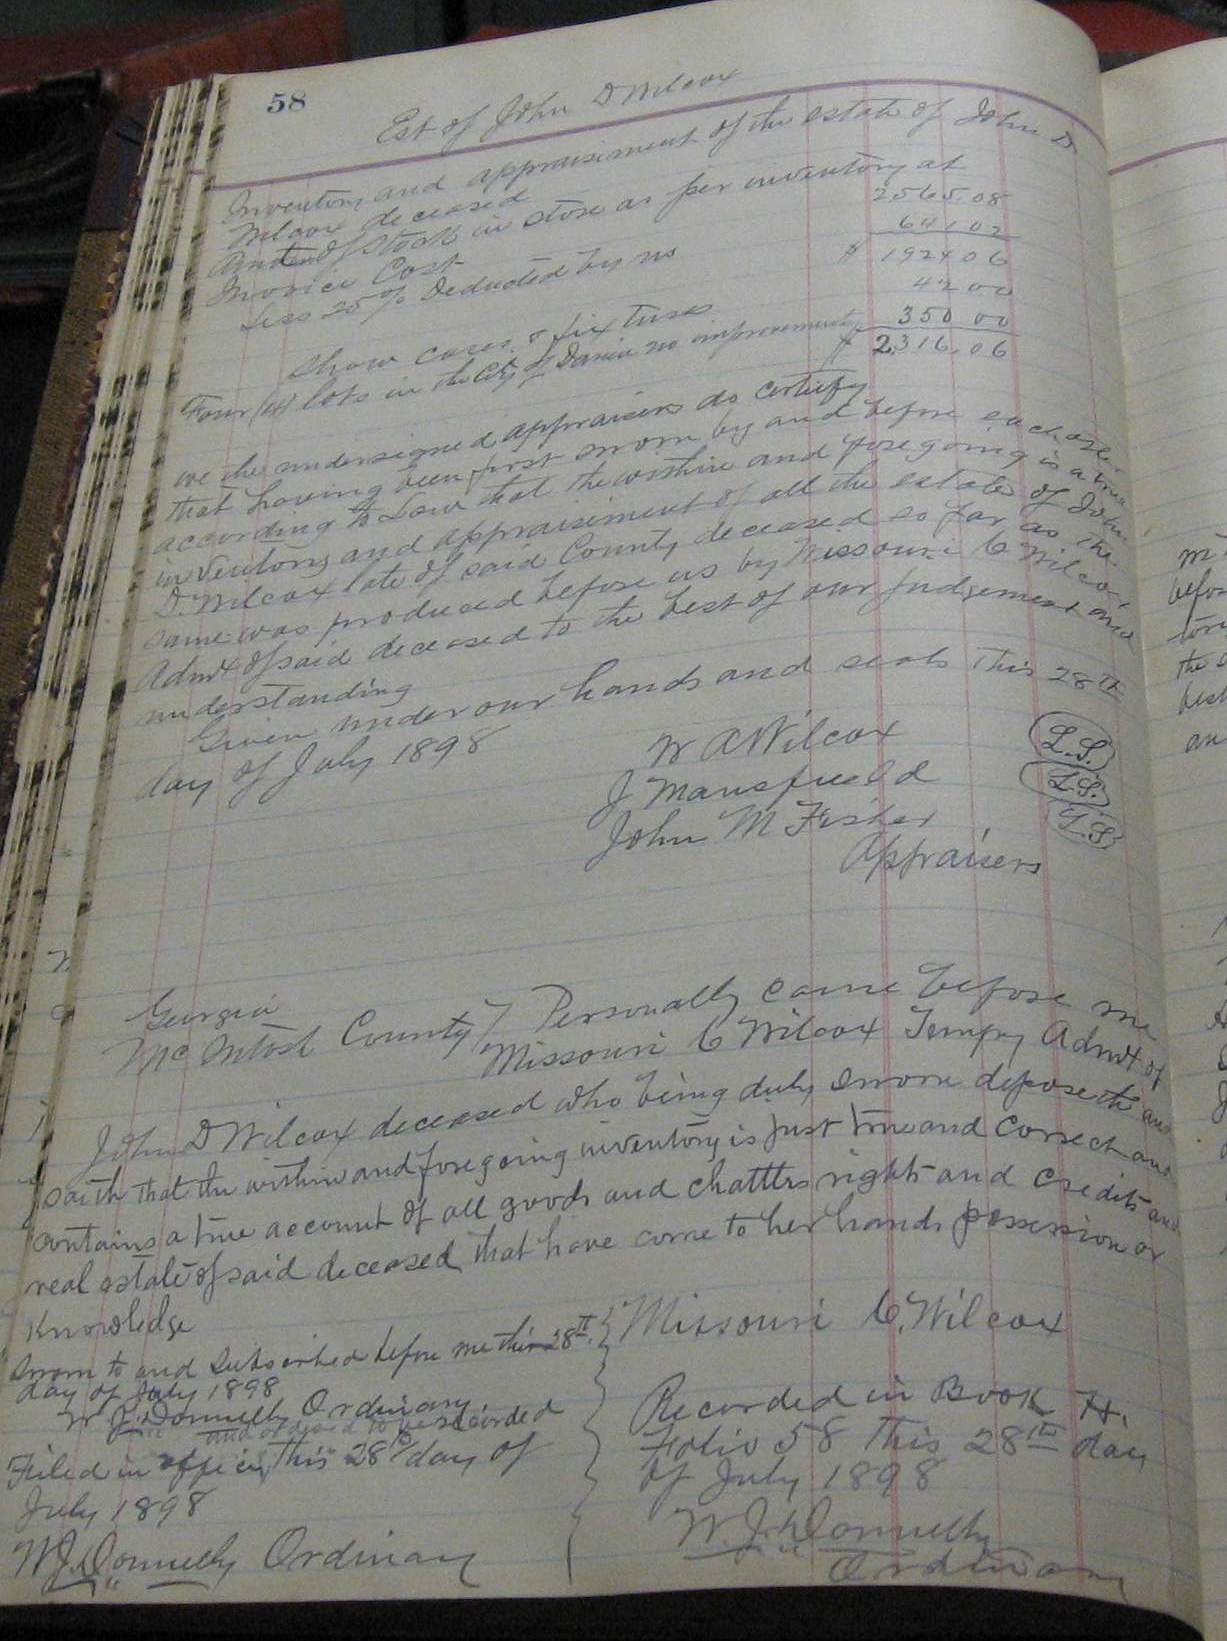 58
Est of John D Wilcox
Inventory and appraisiment of the estate of John D
Wilcox deceased
of Stock in store as per inventory at
Invoice Cost 2565.08
Less 25% Deducted by us 641 02
$ 1924 06
Show cases & fixtures 42 00
Four (4) lots in the City of Darien no improvements 350 00
$ 2,316.06
we the undersigned appraisers do certify
that having been first sworn by and before each other
according to Law that the within and foregoing is a true
inventory and appraisiment of all the estate of John
D. Wilcox late of said County deceased so far as the
same was produced before us by Missouri C Wilcox
Admx of said deceased to the best of our judgement and
understanding
Given under our hands and seals This 28th
day of July 1898
W A Wilcox L.S.
J Mansfield L.S.
John M Fisher L.S
Appraisers
Georgia
McIntosh County } Personally came before me
Missouri C Wilcox Tempy Admx of
John D Wilcox deceased who being duly sworn deposeth and
saith that the within and foregoing inventory is just true and correct and
contains a true account of all goods and chattles rights and credits and
real estate of said deceased that have come to her hands possession or
Knowledge
Sworn to and Subscribed before me this 28th } Missouri C. Wilcox
day of July 1898
W J Donnelly Ordinary
and ordered to be recorded
Filed in office, this 28th day of
July 1898
W J Donnelly Ordinary
Recorded in Book H.
Folio 58 This 28th day
of July 1898
W. J. Donnelly
Ordinary